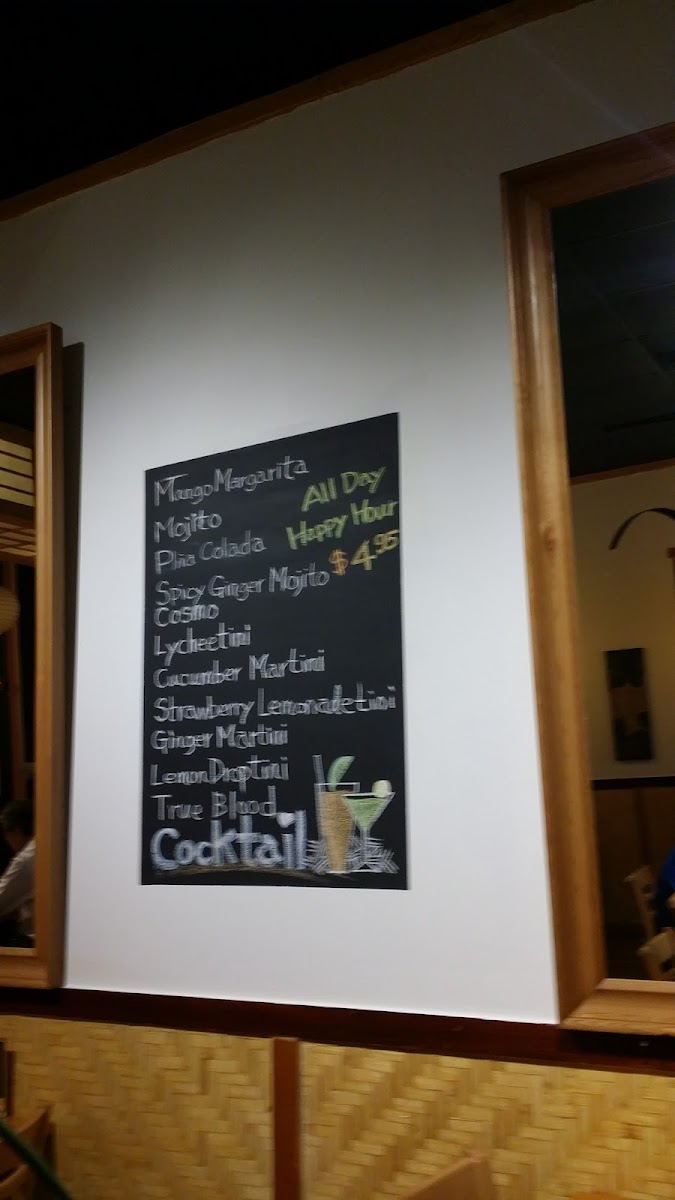 Mango Margarita
Mojito
All Day
Happy Hour
$4.95
Piña Colada
Spicy Ginger Mojito
Cosmo
Lycheetini
Cucumber Martini
Strawberry Lemonadetini
Ginger Martini
Lemon Droptini
True Blood
Cocktail